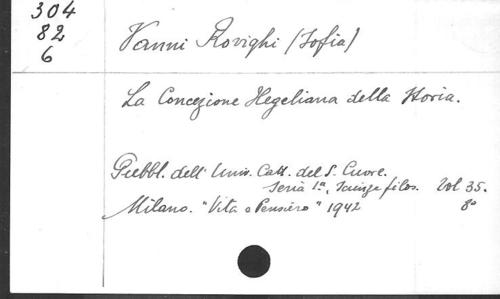 304
82
6
Vanni Rovighi (Sofia)
La Concezione Hegeliana della Storia.
Pubbl. dell' Univ. Catt. del S. Cuore.
Seria 1ª, Scienze filos. Vol 35.
Milano. "Vita e Pensiero" 1942 8º